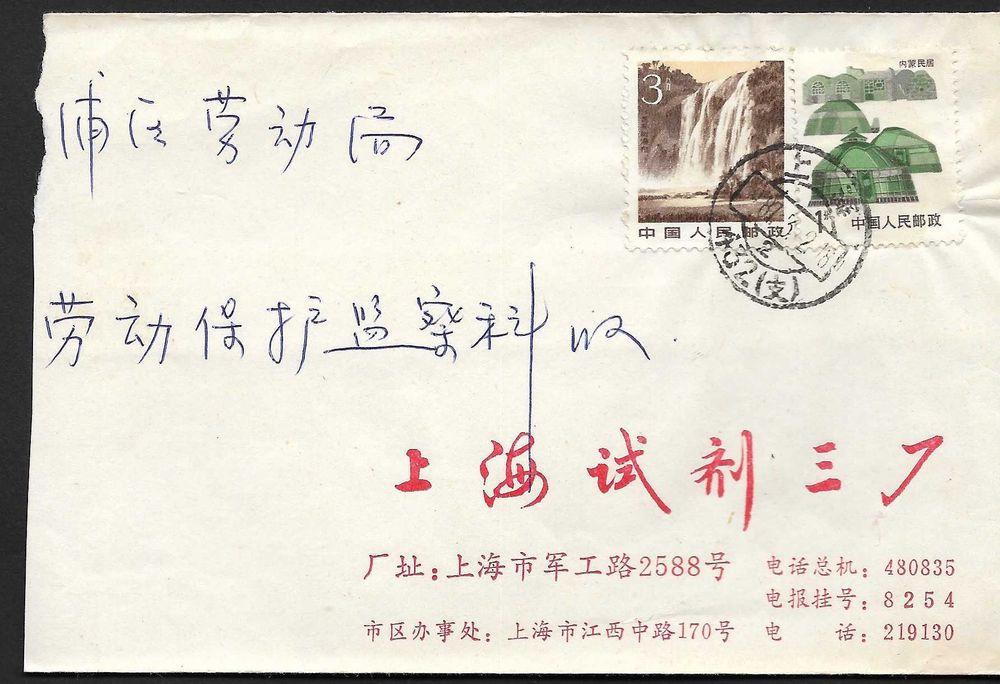 浦区劳动局
3分
内蒙民居
中国人民邮政
中国人民邮政
432(支)
劳动保护监察科 收
上海试剂三厂
厂址：上海市军工路2588号
电话总机：480835
电报挂号：8254
市区办事处：上海市江西中路170号
电 话：219130